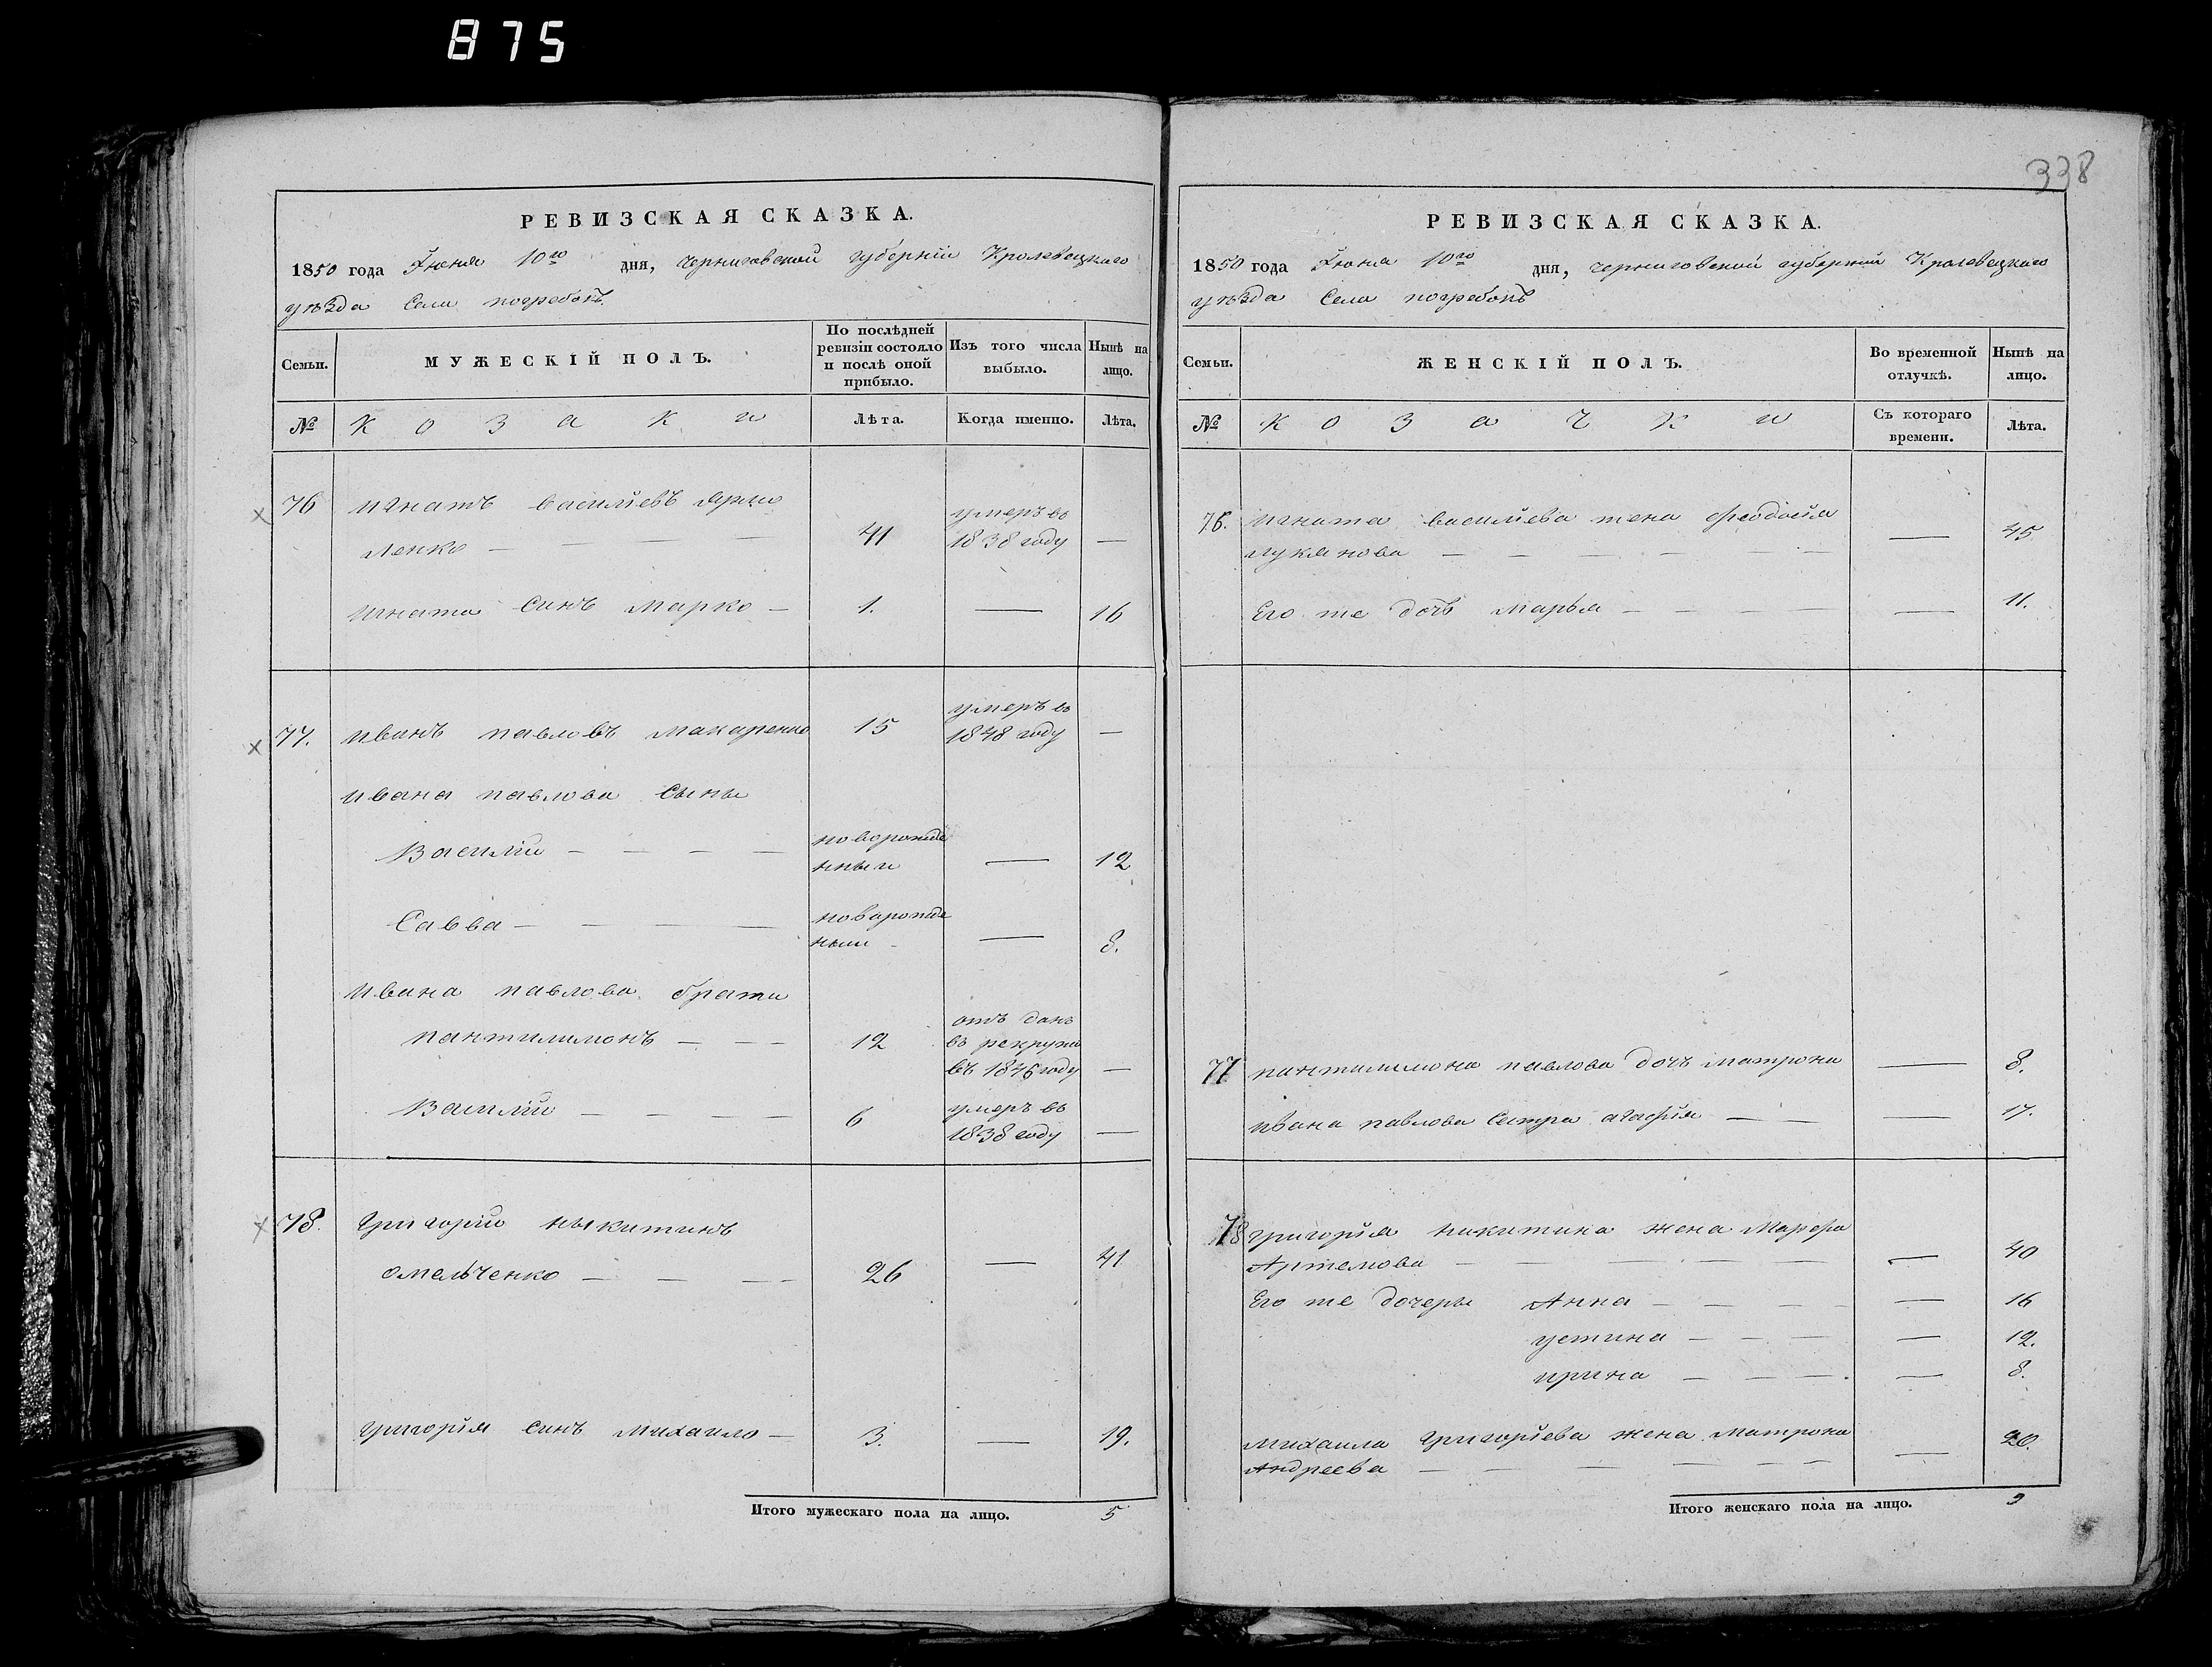 875
338
РЕВИЗСКАЯ СКАЗКА.
1850 года Іюня 10го дня, черниговской губерніи Кролевецкаго
уѣзда Села погребокъ
Семьи.
МУЖЕСКІЙ ПОЛЪ.
По послѣдней
ревизіи состояло
и послѣ оной
прибыло.
Изъ того числа
выбыло.
Нынѣ на
лицо.
№
Козаки
Лѣта.
Когда именно.
Лѣта.
76 игнатъ василіевъ Ярмо
ленко — — — 41 умеръ въ 1838 году —
игната синъ марко — 1. — 16
77. иванъ павловъ макаренко 15 умеръ въ 1848 году —
ивана павлова сыны
Василій — — — — новорожде
нныи — 12
Савва — — — — новорожде
ныи — 8.
ивана павлова брати
пантилимонъ — — — 12 отъ данъ
въ рекруты
въ 1846 году —
Василій — — — — 6 умеръ въ
1838 году —
78. григорій ныкитинъ
омельченко — — — 26 — 41
григорія синъ михаило — 3. — 19.
Итого мужескаго пола на лицо. 5
РЕВИЗСКАЯ СКАЗКА.
1850 года Іюня 10го дня, черниговской губерніи Кролевецкаго
уѣзда Села погребокъ
Семьи.
ЖЕНСКІЙ ПОЛЪ.
Во временной
отлучкѣ.
Нынѣ на
лицо.
№
Козачки
Съ котораго
времени.
Лѣта.
76. игната василіева жена феодосія
лукянова — — — — — 45
Его же дочь марья — — — — 11.
77 пантилимона павлова дочь матрона — 8.
ивана павлова сестра агафія — — — 17.
78 григорія никитина жена Марфа
Артемова — — — — — 40
Его же дочеры Анна — — — — 16
устина — — — — 12.
ирина — — — — 8.
михаила григоріева жена матрона
Андреева — — — — — 20.
Итого женскаго пола на лицо. 9